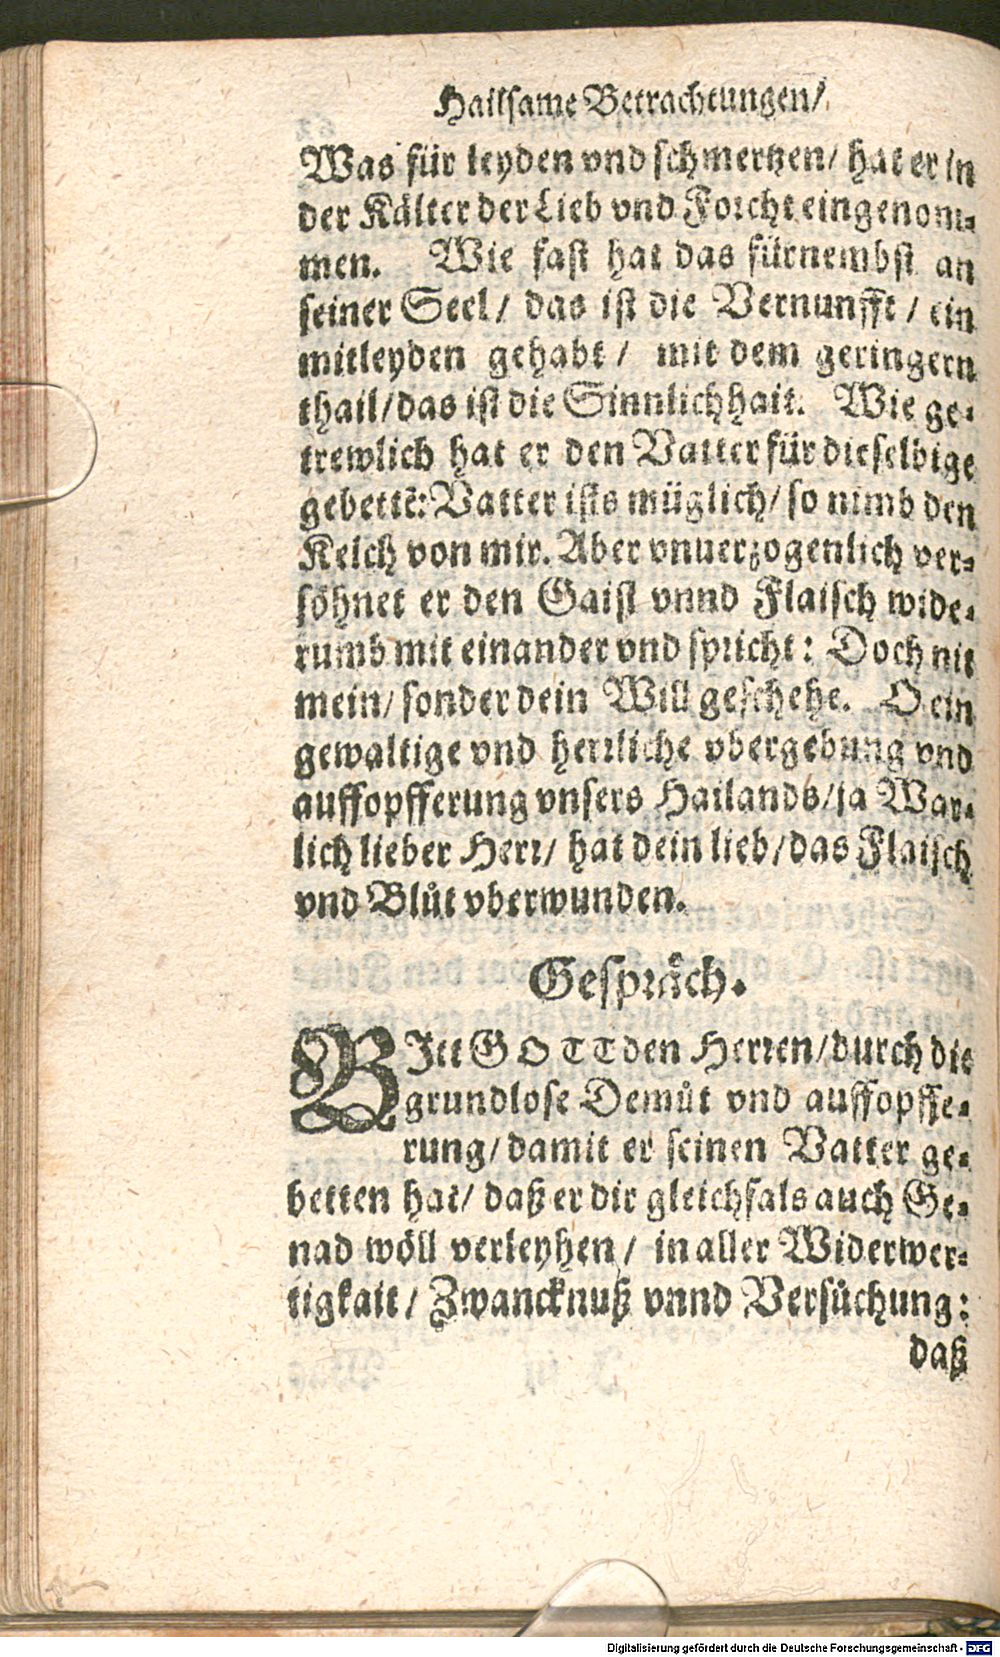 Hailsame Betrachtungen/
Was für leyden vnd schmertzen/ hat er in
der Kälter der Lieb vnd Forcht eingenom⸗
men. Wie fast hat das fürnembst an
seiner Seel/ das ist die Vernunfft / ein
mitleyden gehabt / mit dem geringern
thail/das ist die Sinnlichhait. Wie ge⸗
trewlich hat er den Vatter für dieselbige
gebettẽ: Vatter ists müglich/ so nimb den
Kelch von mir. Aber vnuerzogenlich ver⸗
söhnet er den Gaist vnnd Flaisch wide⸗
rumb mit einander vnd spricht: Doch nit
mein/ sonder dein Will geschehe. O ein
gewaltige vnd herrliche vbergebung vnd
auffopfferung vnsers Hailands/ja War⸗
lich lieber Herr/ hat dein lieb/das Flaisch
vnd Blůt vberwunden.
Gespräch.
BItt GOTT den Herren/durch die
grundlose Demůt vnd auffopffe⸗
rung/damit er seinen Vatter ge⸗
betten hat/ daß er dir gleichfals auch Ge⸗
nad wöll verleyhen/ in aller Widerwer⸗
tigkait/ Zwancknuß vnnd Versůchung:
daß
Digitalisierung gefördert durch die Deutsche Forschungsgemeinschaft - DFG